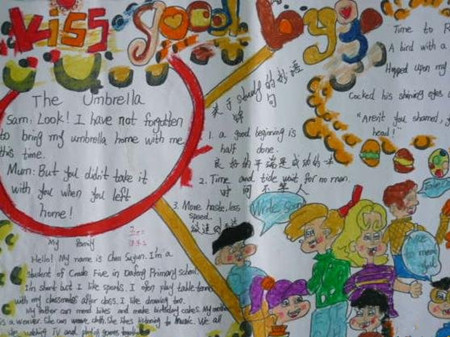 Kiss good bye
The Umbrella
Sam: Look! I have not forgotten
to bring my umbrella home with me
this time.
Mum: But you didn't take it
with you when you left
home!
关于study的妙语
句
1. a good beginning is
half done.
良好的开端是成功的一半
2. Time and tide wait for no man.
时间不等人
3. More haste, less
speed.
欲速则不达
Time to
A bird with a
Hopped upon my
Cocked his shining eyes
"Aren't you shamed, you
head!"
Write soon
My Family
Hello! My name is Chen
student of Grade Five in Primary school.
I'm short but I like sports. I often play table tennis
with my classmates after class. I like drawing too.
My father can mend bikes and make birthday cakes. My mother
is a worker. She can wash cloth. She likes listening to music. We all
like watching TV and playing games together